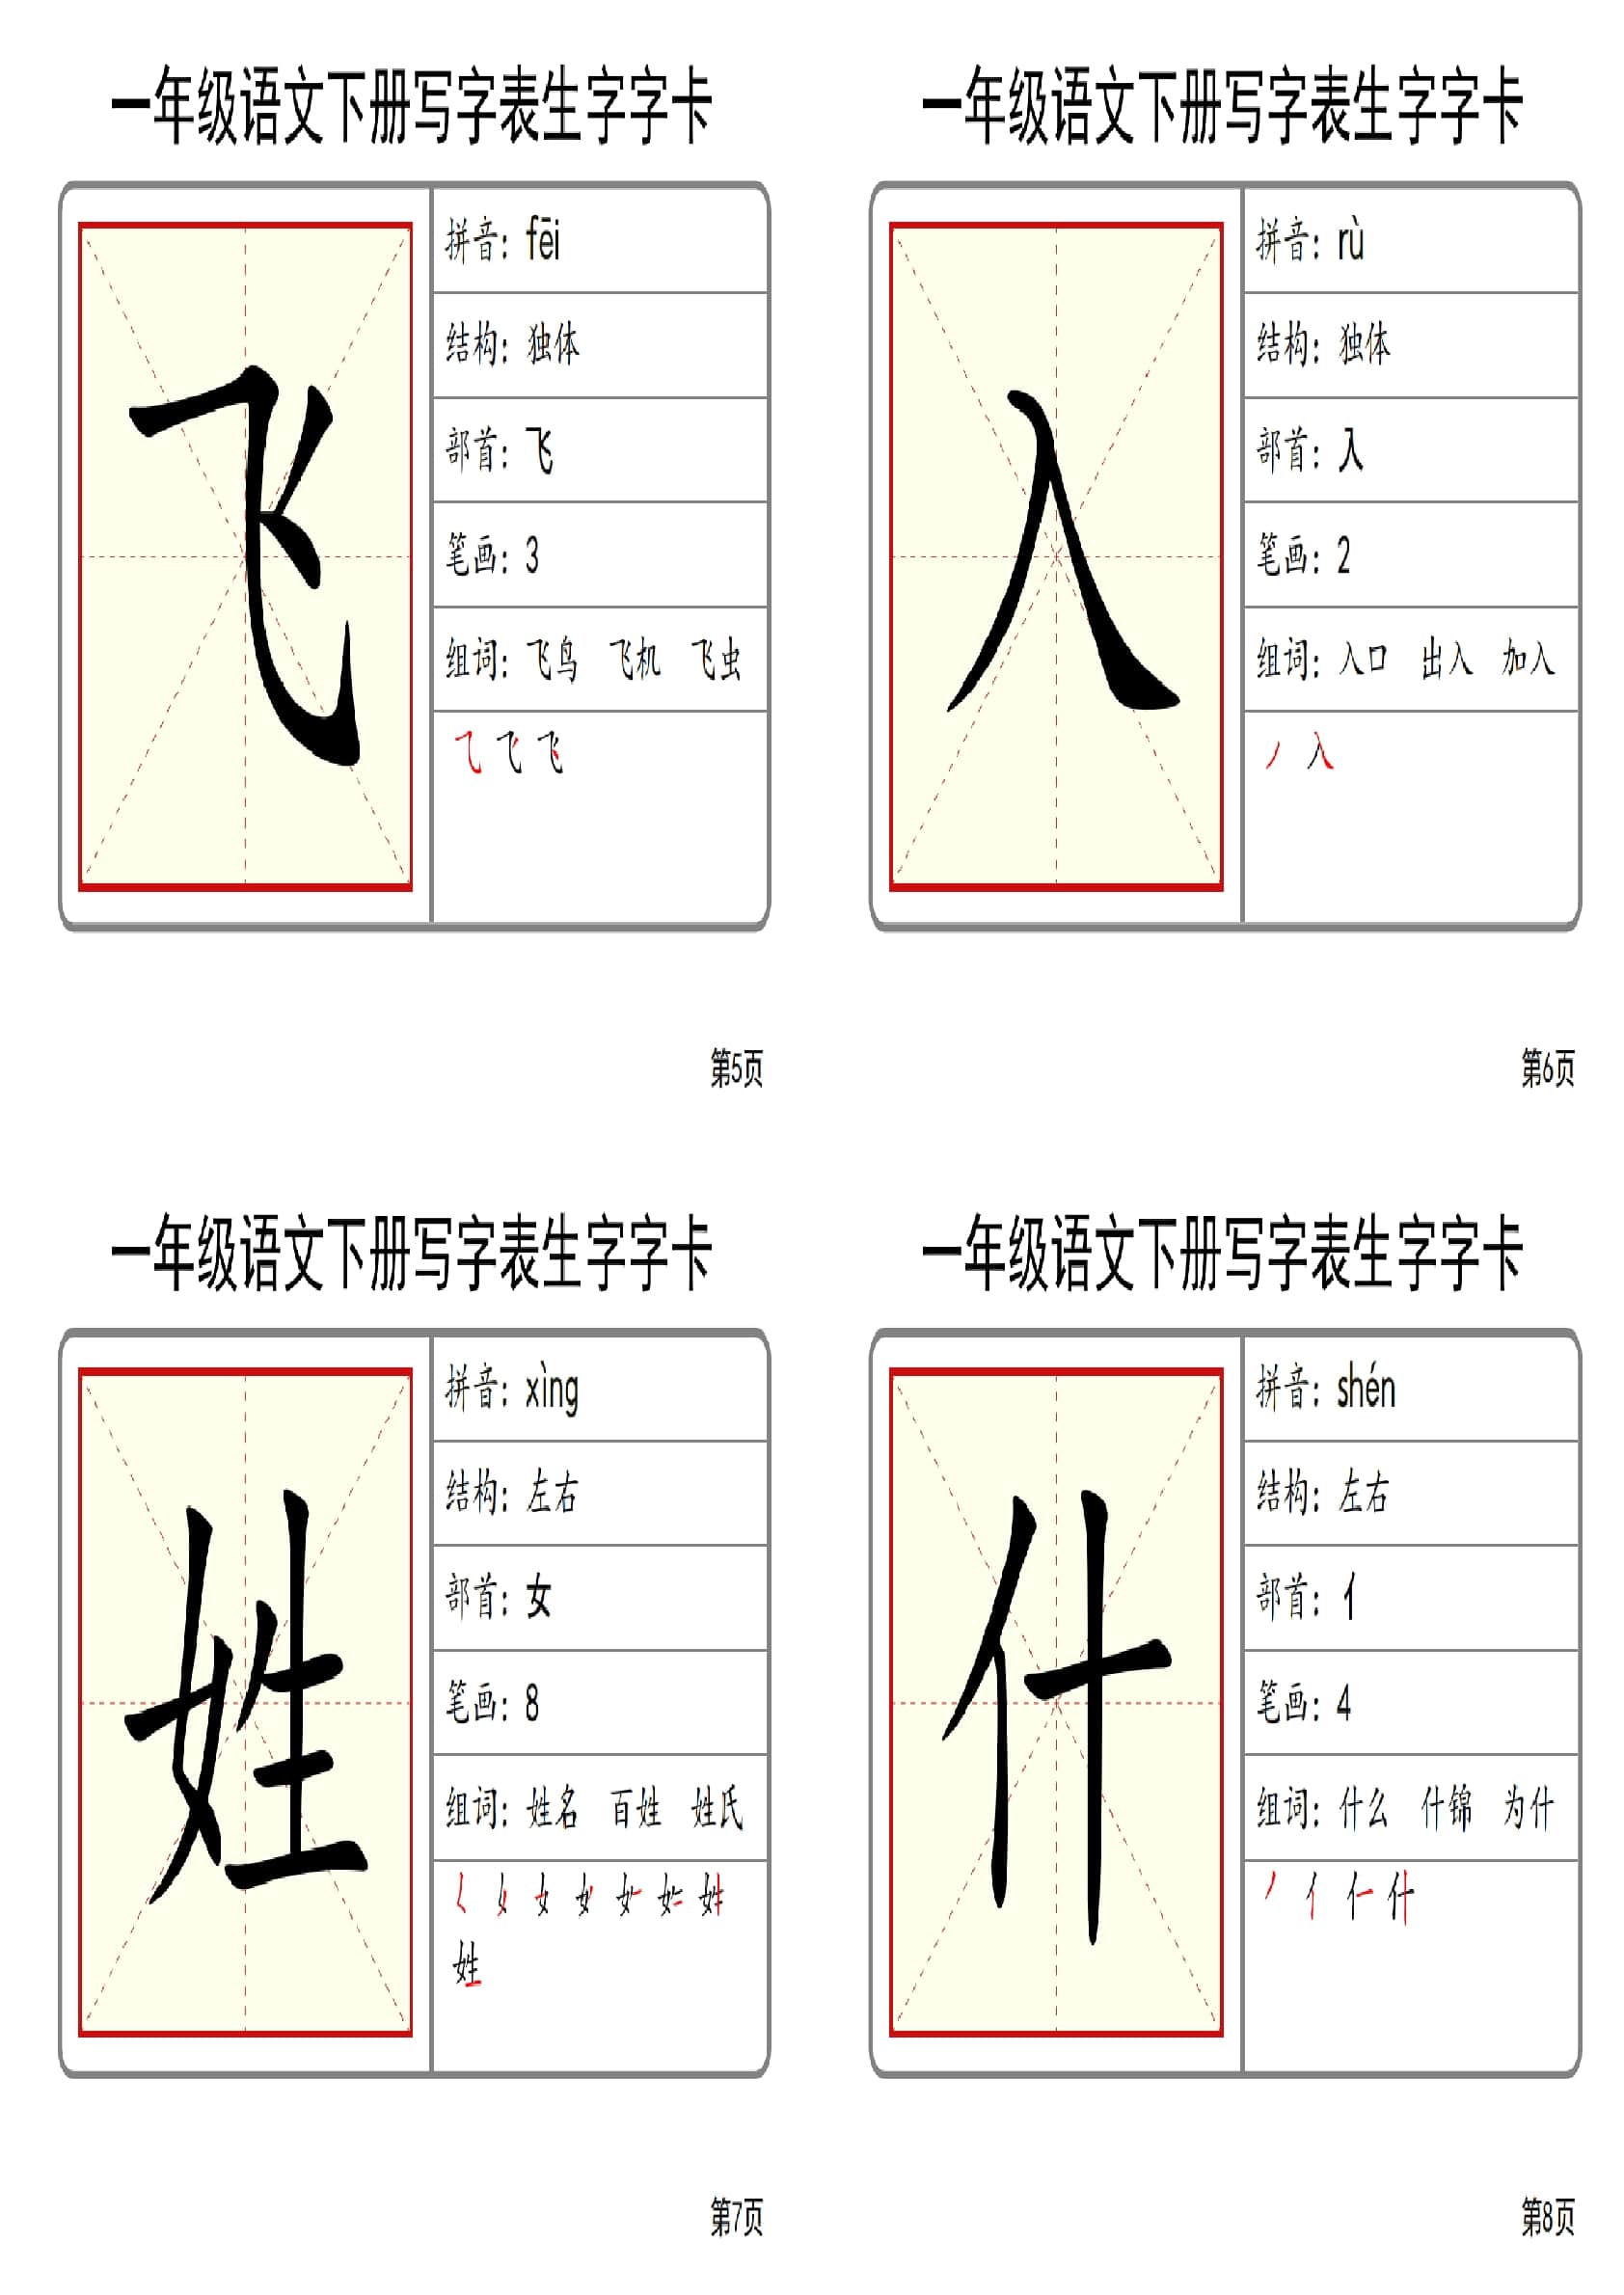 一年级语文下册写字表生字字卡
飞
拼音：fēi
结构：独体
部首：飞
笔画：3
组词：飞鸟 飞机 飞虫
飞
第5页
一年级语文下册写字表生字字卡
入
拼音：rù
结构：独体
部首：入
笔画：2
组词：入口 出入 加入
丿 入
第6页
一年级语文下册写字表生字字卡
姓
拼音：xìng
结构：左右
部首：女
笔画：8
组词：姓名 百姓 姓氏
姓
第7页
一年级语文下册写字表生字字卡
什
拼音：shén
结构：左右
部首：亻
笔画：4
组词：什么 什锦 为什
丿 亻 什
第8页